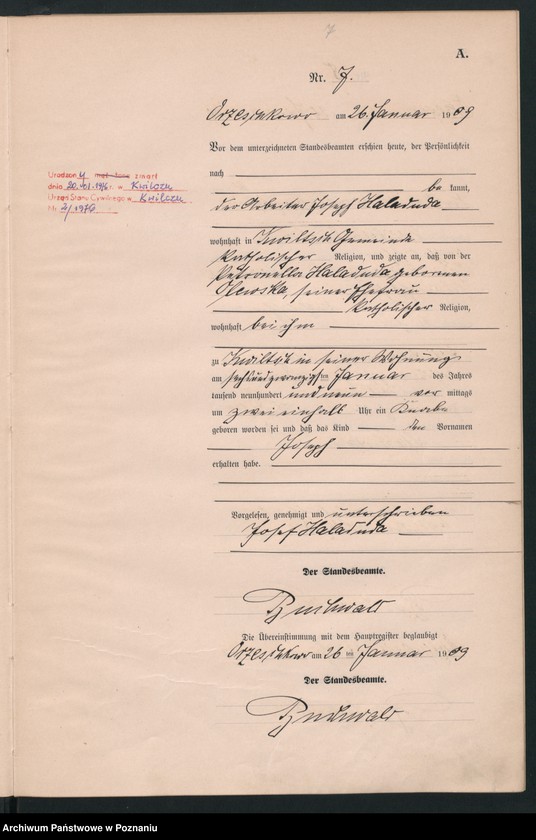 7
A.
Nr. 7.
Orzeschkowo am 26. Januar 1909
Vor dem unterzeichneten Standesbeamten erschien heute, der Persönlichkeit
nach
be kannt,
der Arbeiter Joseph Haladuda
wohnhaft in Kwiltsch Gemeinde
katholischer Religion, und zeigte an, daß von der
Petronella Haladuda geborenen
seiner Ehefrau
katholischer Religion,
wohnhaft bei ihm
zu Kwiltsch in seiner Wohnung
am sechsundzwanzigsten Januar des Jahres
tausend neunhundert und neun vor mittags
um zweieinhalb Uhr ein Knabe
geboren worden sei und daß das Kind den Vornamen
Joseph
erhalten habe.
Vorgelesen, genehmigt und unterschrieben
Josef Haladuda
Der Standesbeamte.
Buchwald
Die Übereinstimmung mit dem Hauptregister beglaubigt
Orzeschkowo am 26 ten Januar 1909
Der Standesbeamte.
Buchwald
Urodzony zmarł
dnia 20.01.1976 r. w Kwilczu
Urząd Stanu Cywilnego w Kwilczu
Nr 2/1976
Archiwum Państwowe w Poznaniu